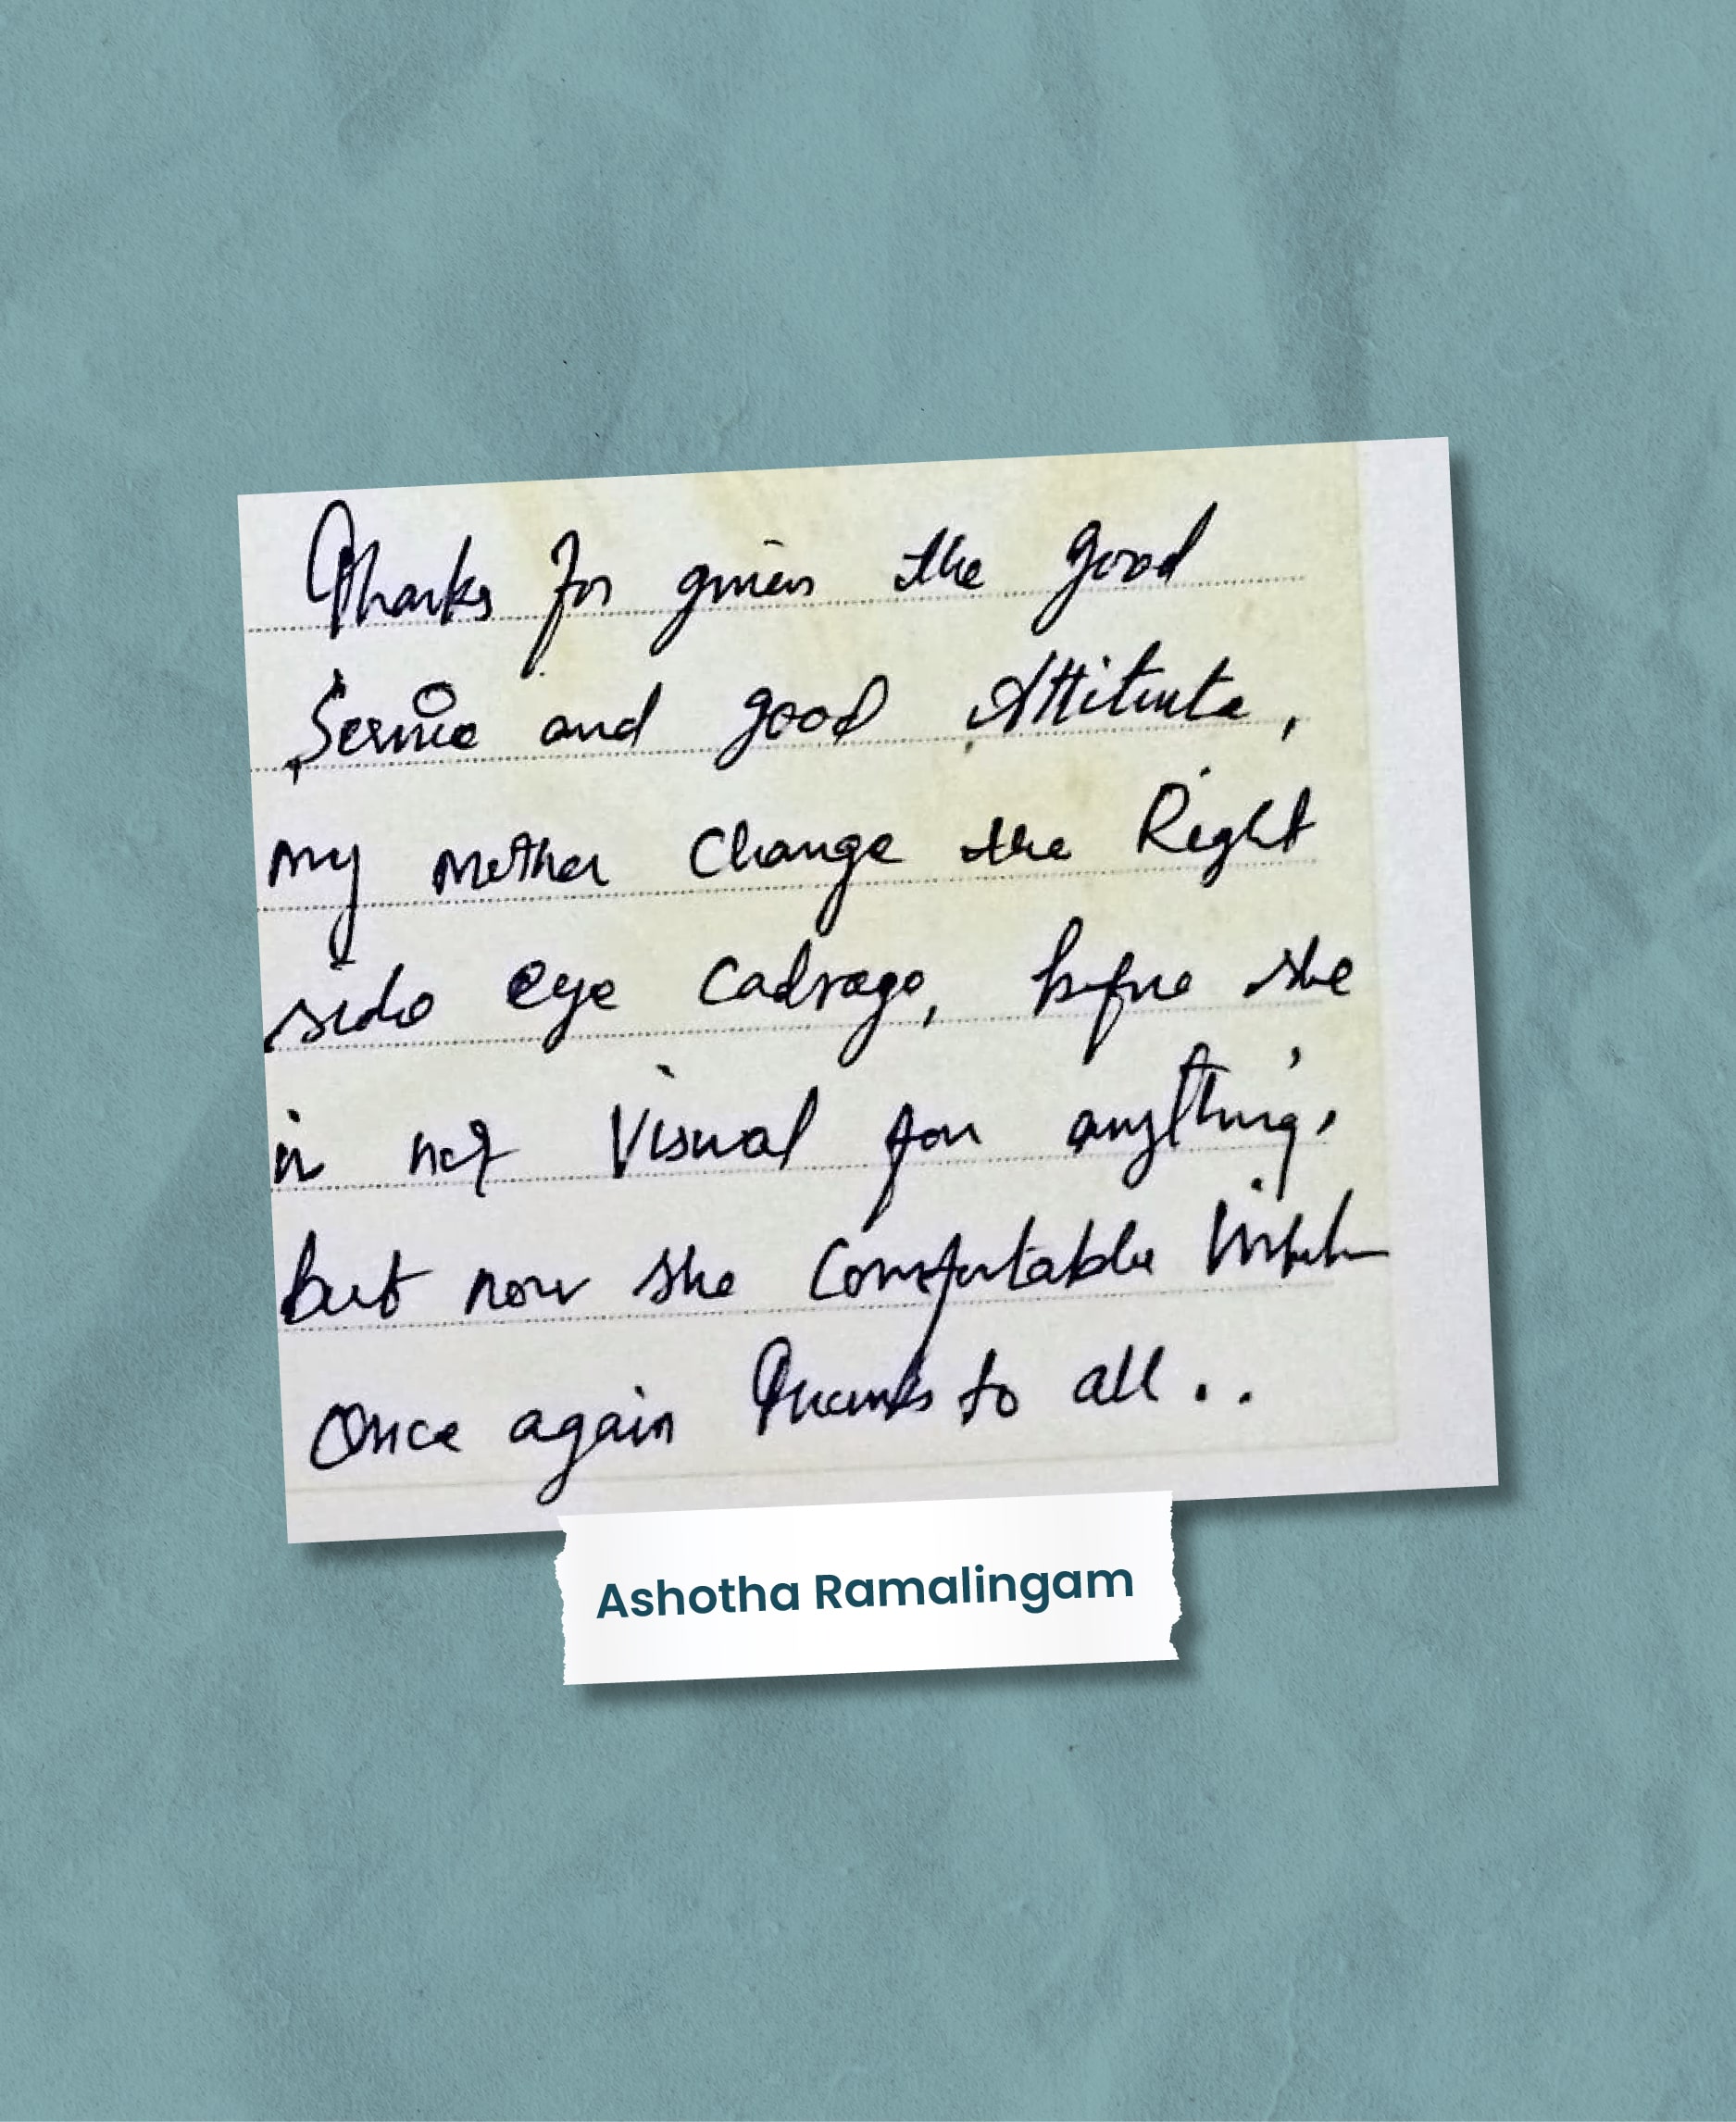 Thanks for given the good
Service and good Attitute,
my mother Change the Right
side eye Cadrage, before she
is not Visual for anything.
but now she Comfortable
Once again Thanks to all..
Ashotha Ramalingam